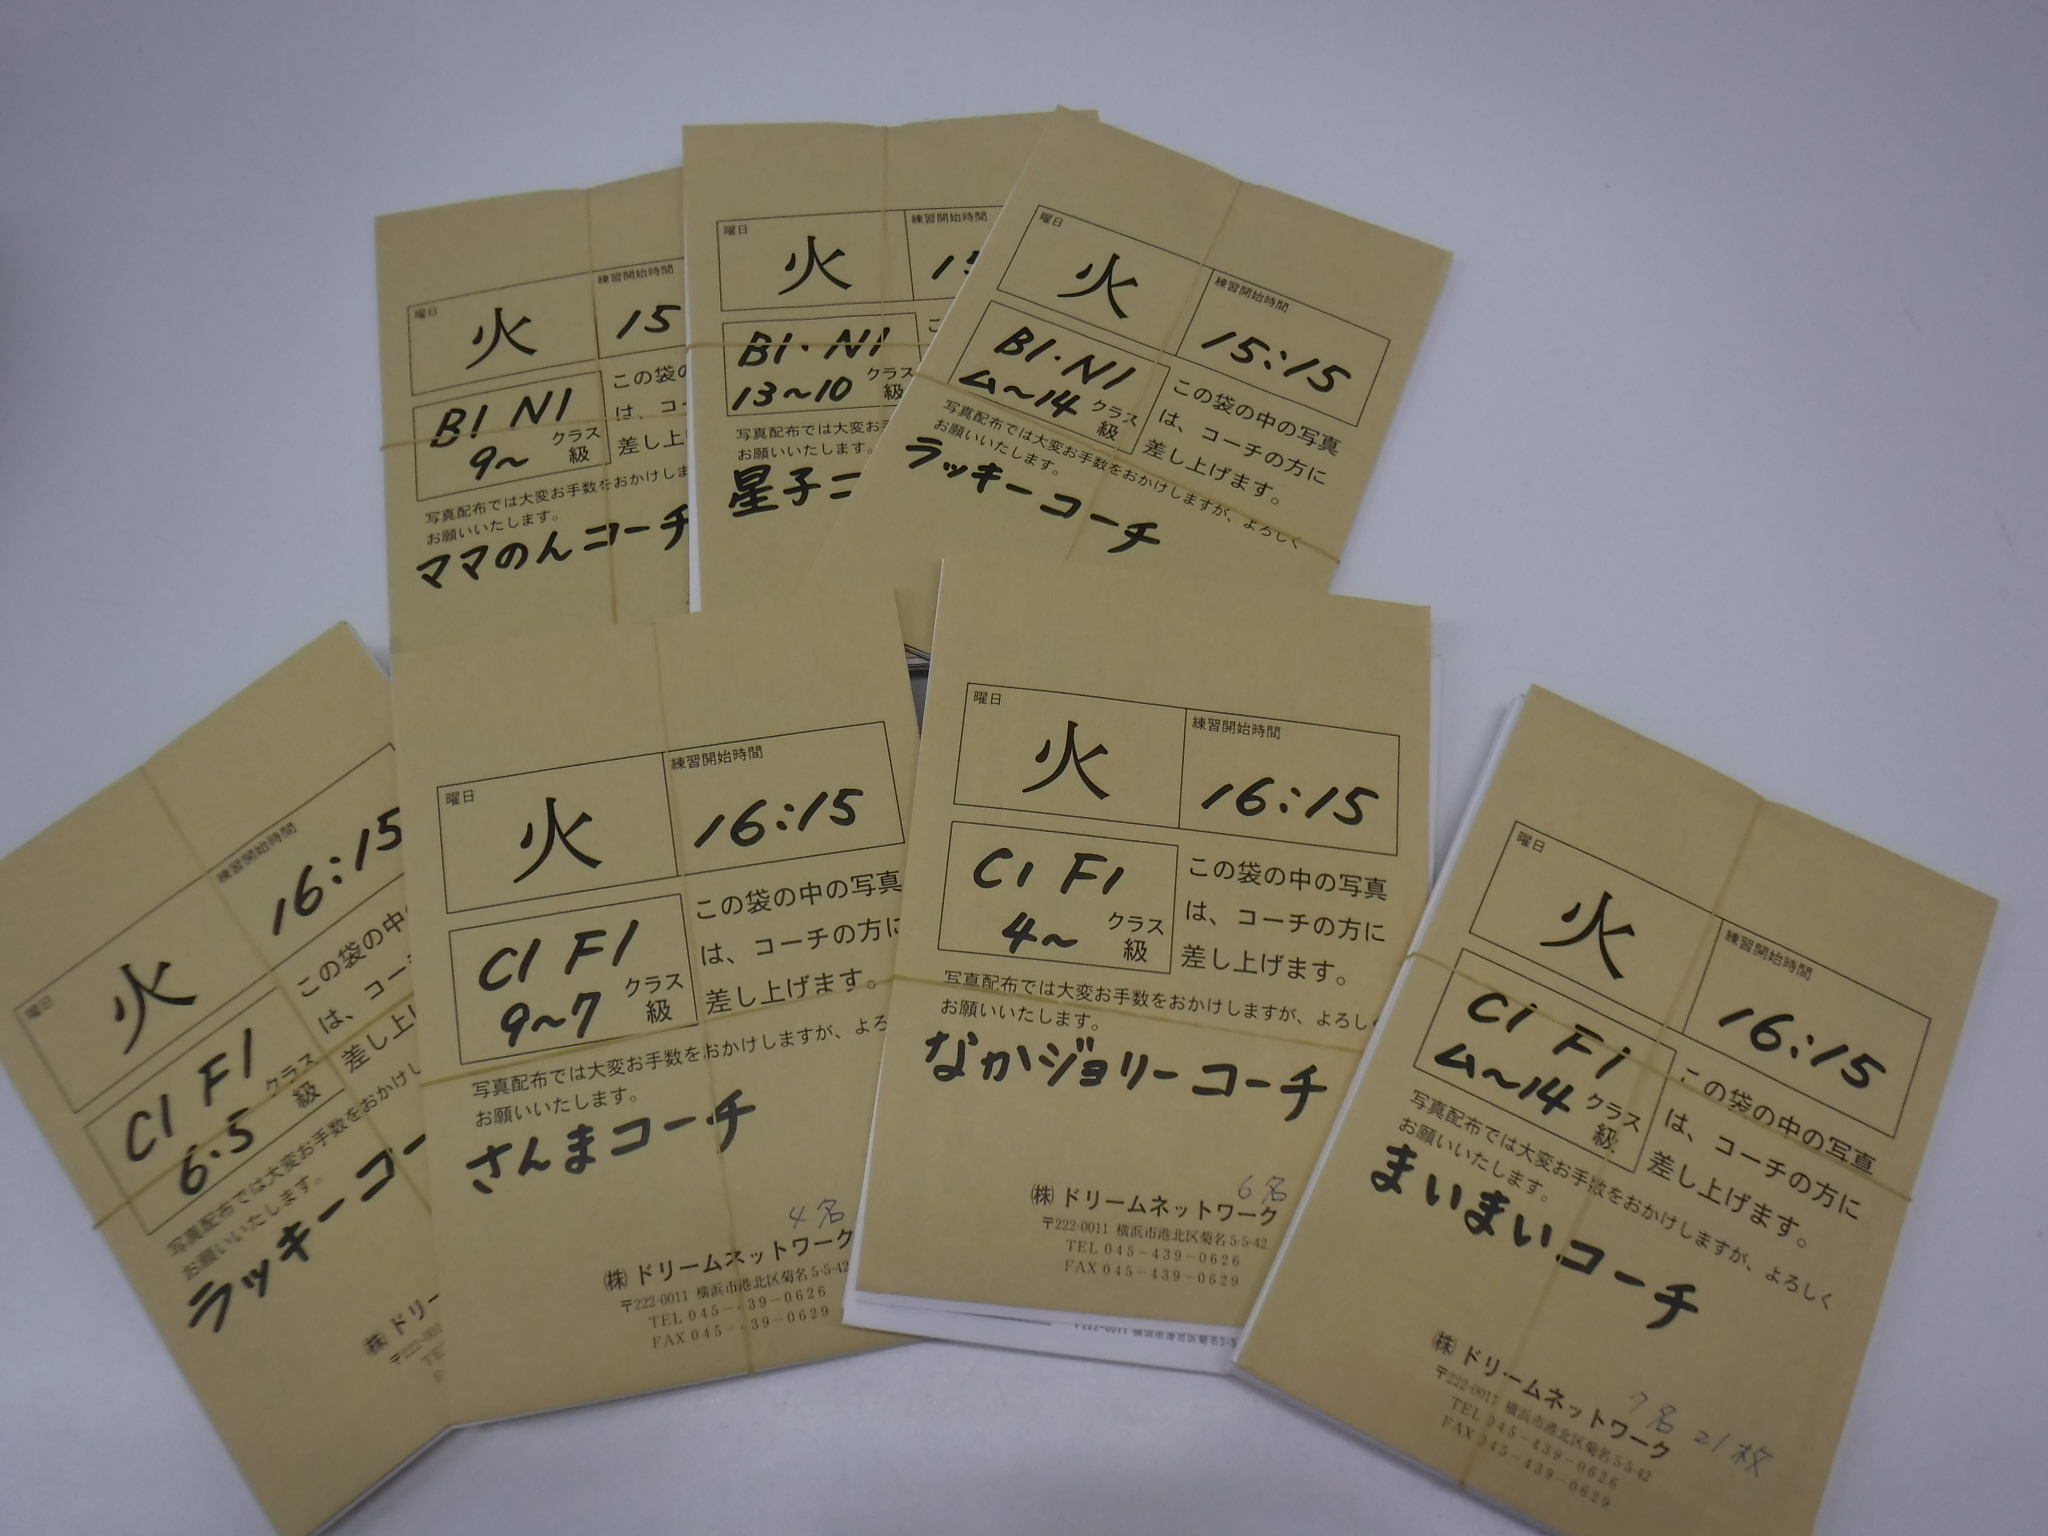 曜日
火
練習開始時間
15
B1 N1
9~
クラス
級
この袋の
は、コー
差し上
写真配布では大変お手数をおかけしま
お願いいたします。
ママのんコーチ
曜日
火
練習開始時間
B1・N1
13~10
クラス
級
写真配布では大変お手
お願いいたします。
星子コ
曜日
火
練習開始時間
15:15
B1・N1
ム~14
クラス
級
この袋の中の写真
は、コーチの方に
差し上げます。
写真配布では大変お手数をおかけしますが、よろしく
お願いいたします。
ラッキーコーチ
曜日
火
練習開始時間
16:15
C1 F1
6・5
クラス
級
この袋の中
は、コーチ
差し上
写真配布では大変お手数をおかけし
お願いいたします。
ラッキーコー
㈱ ドリー
曜日
火
練習開始時間
16:15
C1 F1
9~7
クラス
級
この袋の中の写真
は、コーチの方に
差し上げます。
写真配布では大変お手数をおかけしますが、よろ
お願いいたします。
さんまコーチ
4名
㈱ ドリームネットワーク
〒222-0011 横浜市港北区菊名5-5-42
TEL 045-439-0626
FAX 045-439-0629
曜日
火
練習開始時間
16:15
C1 F1
4~
クラス
級
この袋の中の写真
は、コーチの方に
差し上げます。
写真配布では大変お手数をおかけしますが、よろしく
お願いいたします。
なかジョリーコーチ
6名
㈱ ドリームネットワーク
〒222-0011 横浜市港北区菊名5-5-42
TEL 045-439-0626
FAX 045-439-0629
〒222-0011 横浜市港北区菊名5-5
曜日
火
練習開始時間
16:15
Ci Fi
ム~14
クラス
級
この袋の中の写真
は、コーチの方に
差し上げます。
写真配布では大変お手数をおかけしますが、よろしく
お願いいたします。
まいまいコーチ
㈱ ドリームネットワーク
7名 21枚
〒222-0011 横浜市港北区菊名5-5-42
TEL 045-439-0626
FAX 045-439-0629